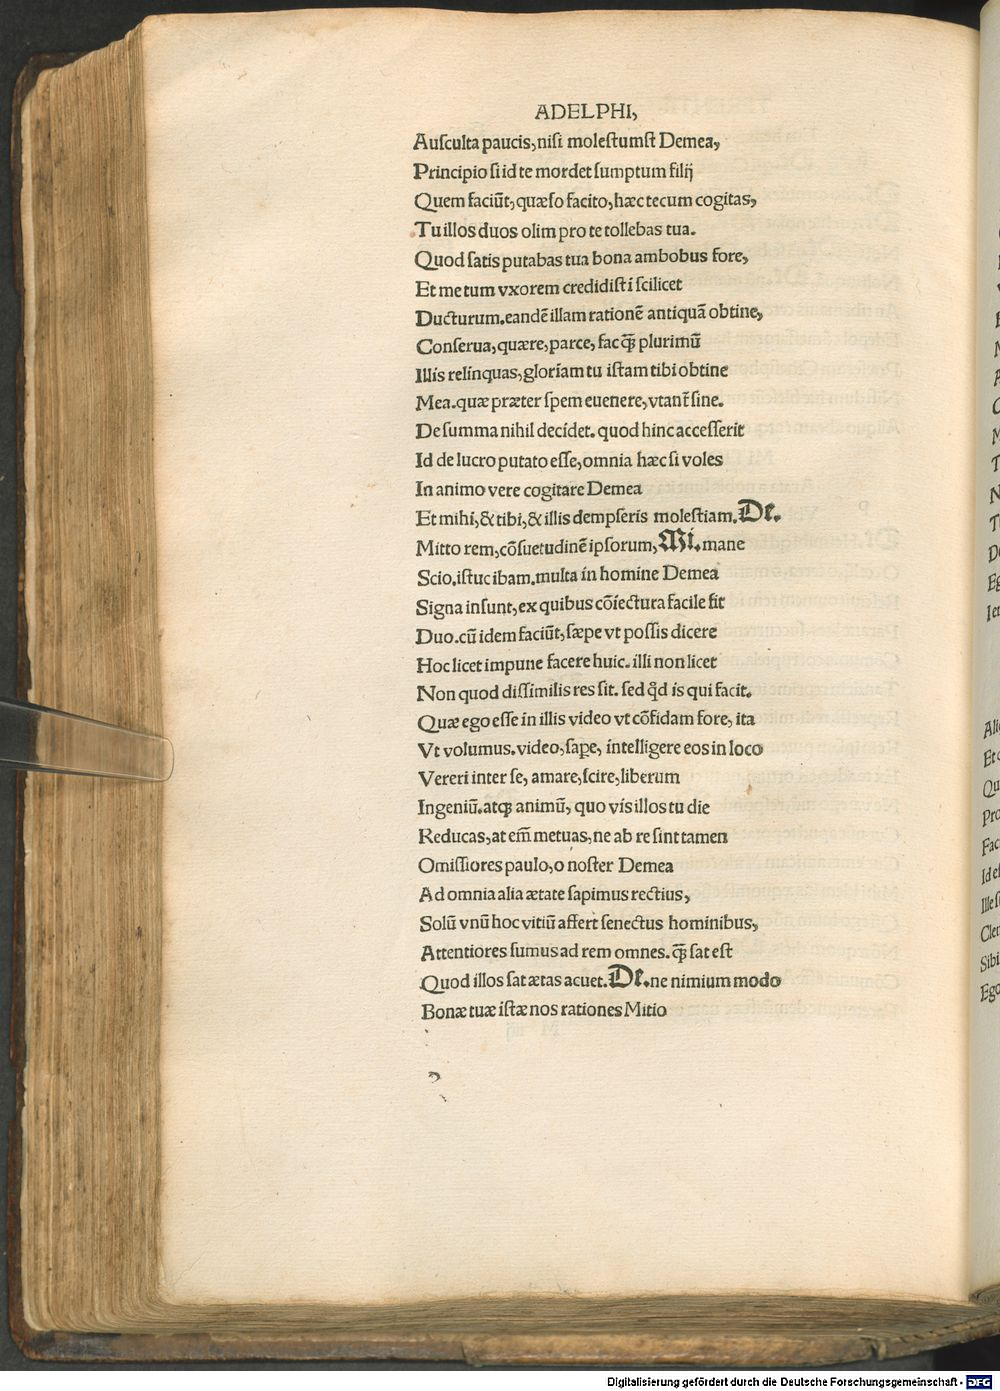 ADELPHI,
Auſculta paucis, niſi moleſtumſt Demea,
Principio ſi id te mordet ſumptum filij
Quem faciūt, quæſo facito, hæc tecum cogitas,
Tu illos duos olim pro te tollebas tua.
Quod ſatis putabas tua bona ambobus fore,
Et me tum vxorem credidiſti ſcilicet
Ducturum. eandē illam rationē antiquā obtine,
Conſerua, quære, parce, fac q̃ plurimū
Illis relinquas, gloriam tu iſtam tibi obtine
Mea. quæ præter ſpem euenere, vtant̃ ſine.
De ſumma nihil decidet. quod hinc acceſſerit
Id de lucro putato eſſe, omnia hæc ſi voles
In animo vere cogitare Demea
Et mihi, & tibi, & illis dempſeris moleſtiam. De.
Mitto rem, cōſuetudinē ipſorum, Mi. mane
Scio. iſtuc ibam. multa in homine Demea
Signa inſunt, ex quibus cōiectura facile fit
Duo. cū idem faciūt, ſæpe vt poſſis dicere
Hoc licet impune facere huic. illi non licet
Non quod diſſimilis res ſit. ſed qd̓ is qui facit.
Quæ ego eſſe in illis video vt cōfidam fore, ita
Vt volumus. video, ſaꝑe, intelligere eos in loco
Vereri inter ſe, amare, ſcire, liberum
Ingeniū. atqꝫ animū, quo vis illos tu die
Reducas, at em̄ metuas, ne ab re ſint tamen
Omiſſiores paulo, o noſter Demea
Ad omnia alia ætate ſapimus rectius,
Solū vnū hoc vitiū affert ſenectus hominibus,
Attentiores ſumus ad rem omnes. q̃ ſat eſt
Quod illos ſat ætas acuet. De. ne nimium modo
Bonæ tuæ iſtæ nos rationes Mitio
Digitalisierung gefördert durch die Deutsche Forschungsgemeinschaft - DFG